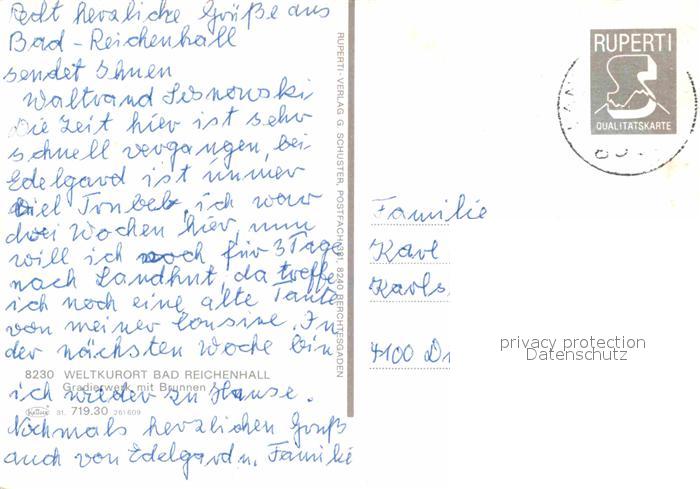 Recht herzliche Grüße aus
Bad-Reichenhall
sendet Ihnen
Waltraud Lesnowski
Die Zeit hier ist sehr
schnell vergangen, bei
Edelgard ist immer
viel Trubel, ich war
drei Wochen hier, nun
will ich noch für 3 Tage
nach Landhut, da treffe
ich noch eine alte Tante
von meiner Cousine. In
der nächsten Woche bin
8230 WELTKURORT BAD REICHENHALL
Gradierwerk mit Brunnen
ich wieder zu Hause.
81. 719.30 261609
Nochmals herzlichen Gruß
auch von Edelgard u. Familie
RUPERTI-VERLAG G. SCHUSTER, POSTFACH 381, 8240 BERCHTESGADEN
RUPERTI
QUALITÄTSKARTE
Familie
Karl
Karls
4100 Du
privacy protection
Datenschutz